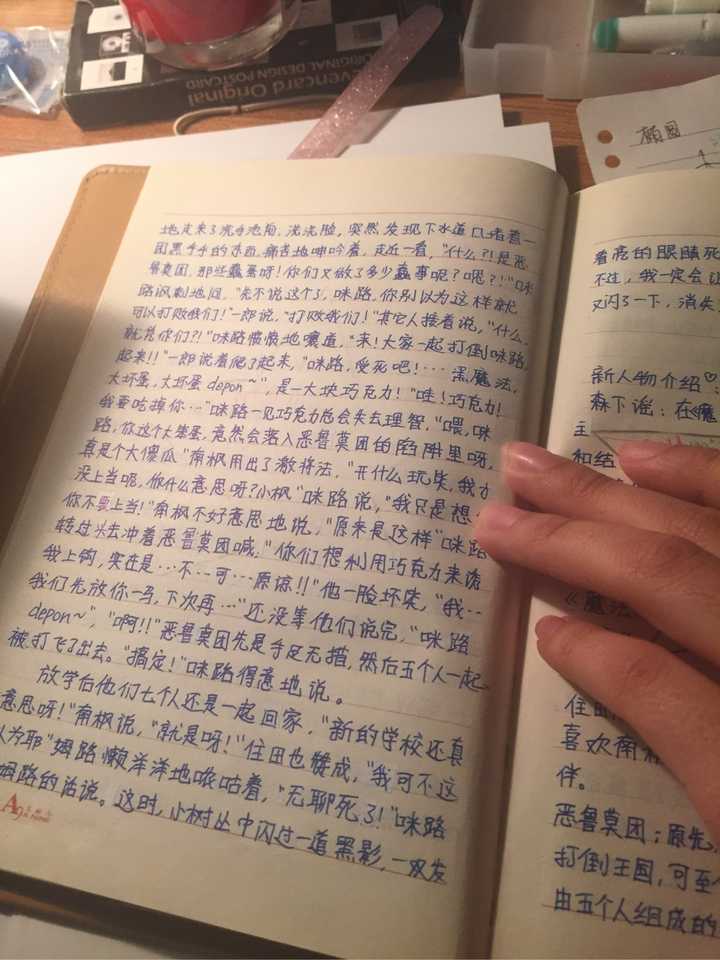 evencard Original
ORIGINAL DESIGN POSTCARD
地走来了洗手池前，洗洗脸，突然发现下水道口堵着一
团黑乎乎的东西，痛苦地呻吟着，走近一看，"什么?!是恶
鲁莫团，那些蠢蛋呀！你们又做了多少蠢事呢？嗯？！"咪
路讽刺地问，"先不说这个了，咪路，你别以为这样就
可以打败我们！"一郎说，"打败我们！"其它人接着说，"什么，
就凭你们?!"咪路愤愤地嚷道，"来！大家一起打倒咪路，
起来!!"一郎说着爬了起来，"咪路，受死吧！…黑魔法，
大坏蛋，大坏蛋depon~"，是一大块巧克力！"哇！巧克力！
我要吃掉你…"咪路一见巧克力总会失去理智，"喂，咪
路，你这个大笨蛋，竟然会落入恶鲁莫团的陷阱里呀，
真是个大傻瓜"南枫用出了激将法，"开什么玩笑，我才
没上当呢，你什么意思呀？小枫"咪路说，"我只是想让
你不要上当！"南枫不好意思地说，"原来是这样"咪路
转过头去冲着恶鲁莫团喊，"你们想利用巧克力来诱
我上钩，实在是…不…可…原谅!!"他一脸坏笑，"我…
我们先放你一马，下次再…"还没等他们说完，"咪路
depon~"，"啊!!"恶鲁莫团先是手足无措，然后五个人一起
被打飞了出去。"搞定！"咪路得意地说。
放学后他们七个人还是一起回家，"新的学校还真
意思呀！"南枫说，"就是呀！"住田也赞成，"我可不这
以为耶"姆路懒洋洋地嘟咕着，"无聊死了！"咪路
姆路的话说。这时，小树丛中闪过一道黑影，一双发
着亮的眼睛死
不过，我一定会让
又闪了一下，消失
新人物介绍♡
森下谣：在魔
主
和结
《魔法
住田
喜欢南
伴。
恶鲁莫团：原先，
打倒王国，可至
由五个人组成的